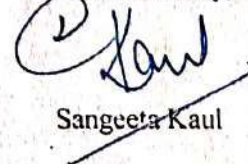 Kaul
Sangeeta Kaul